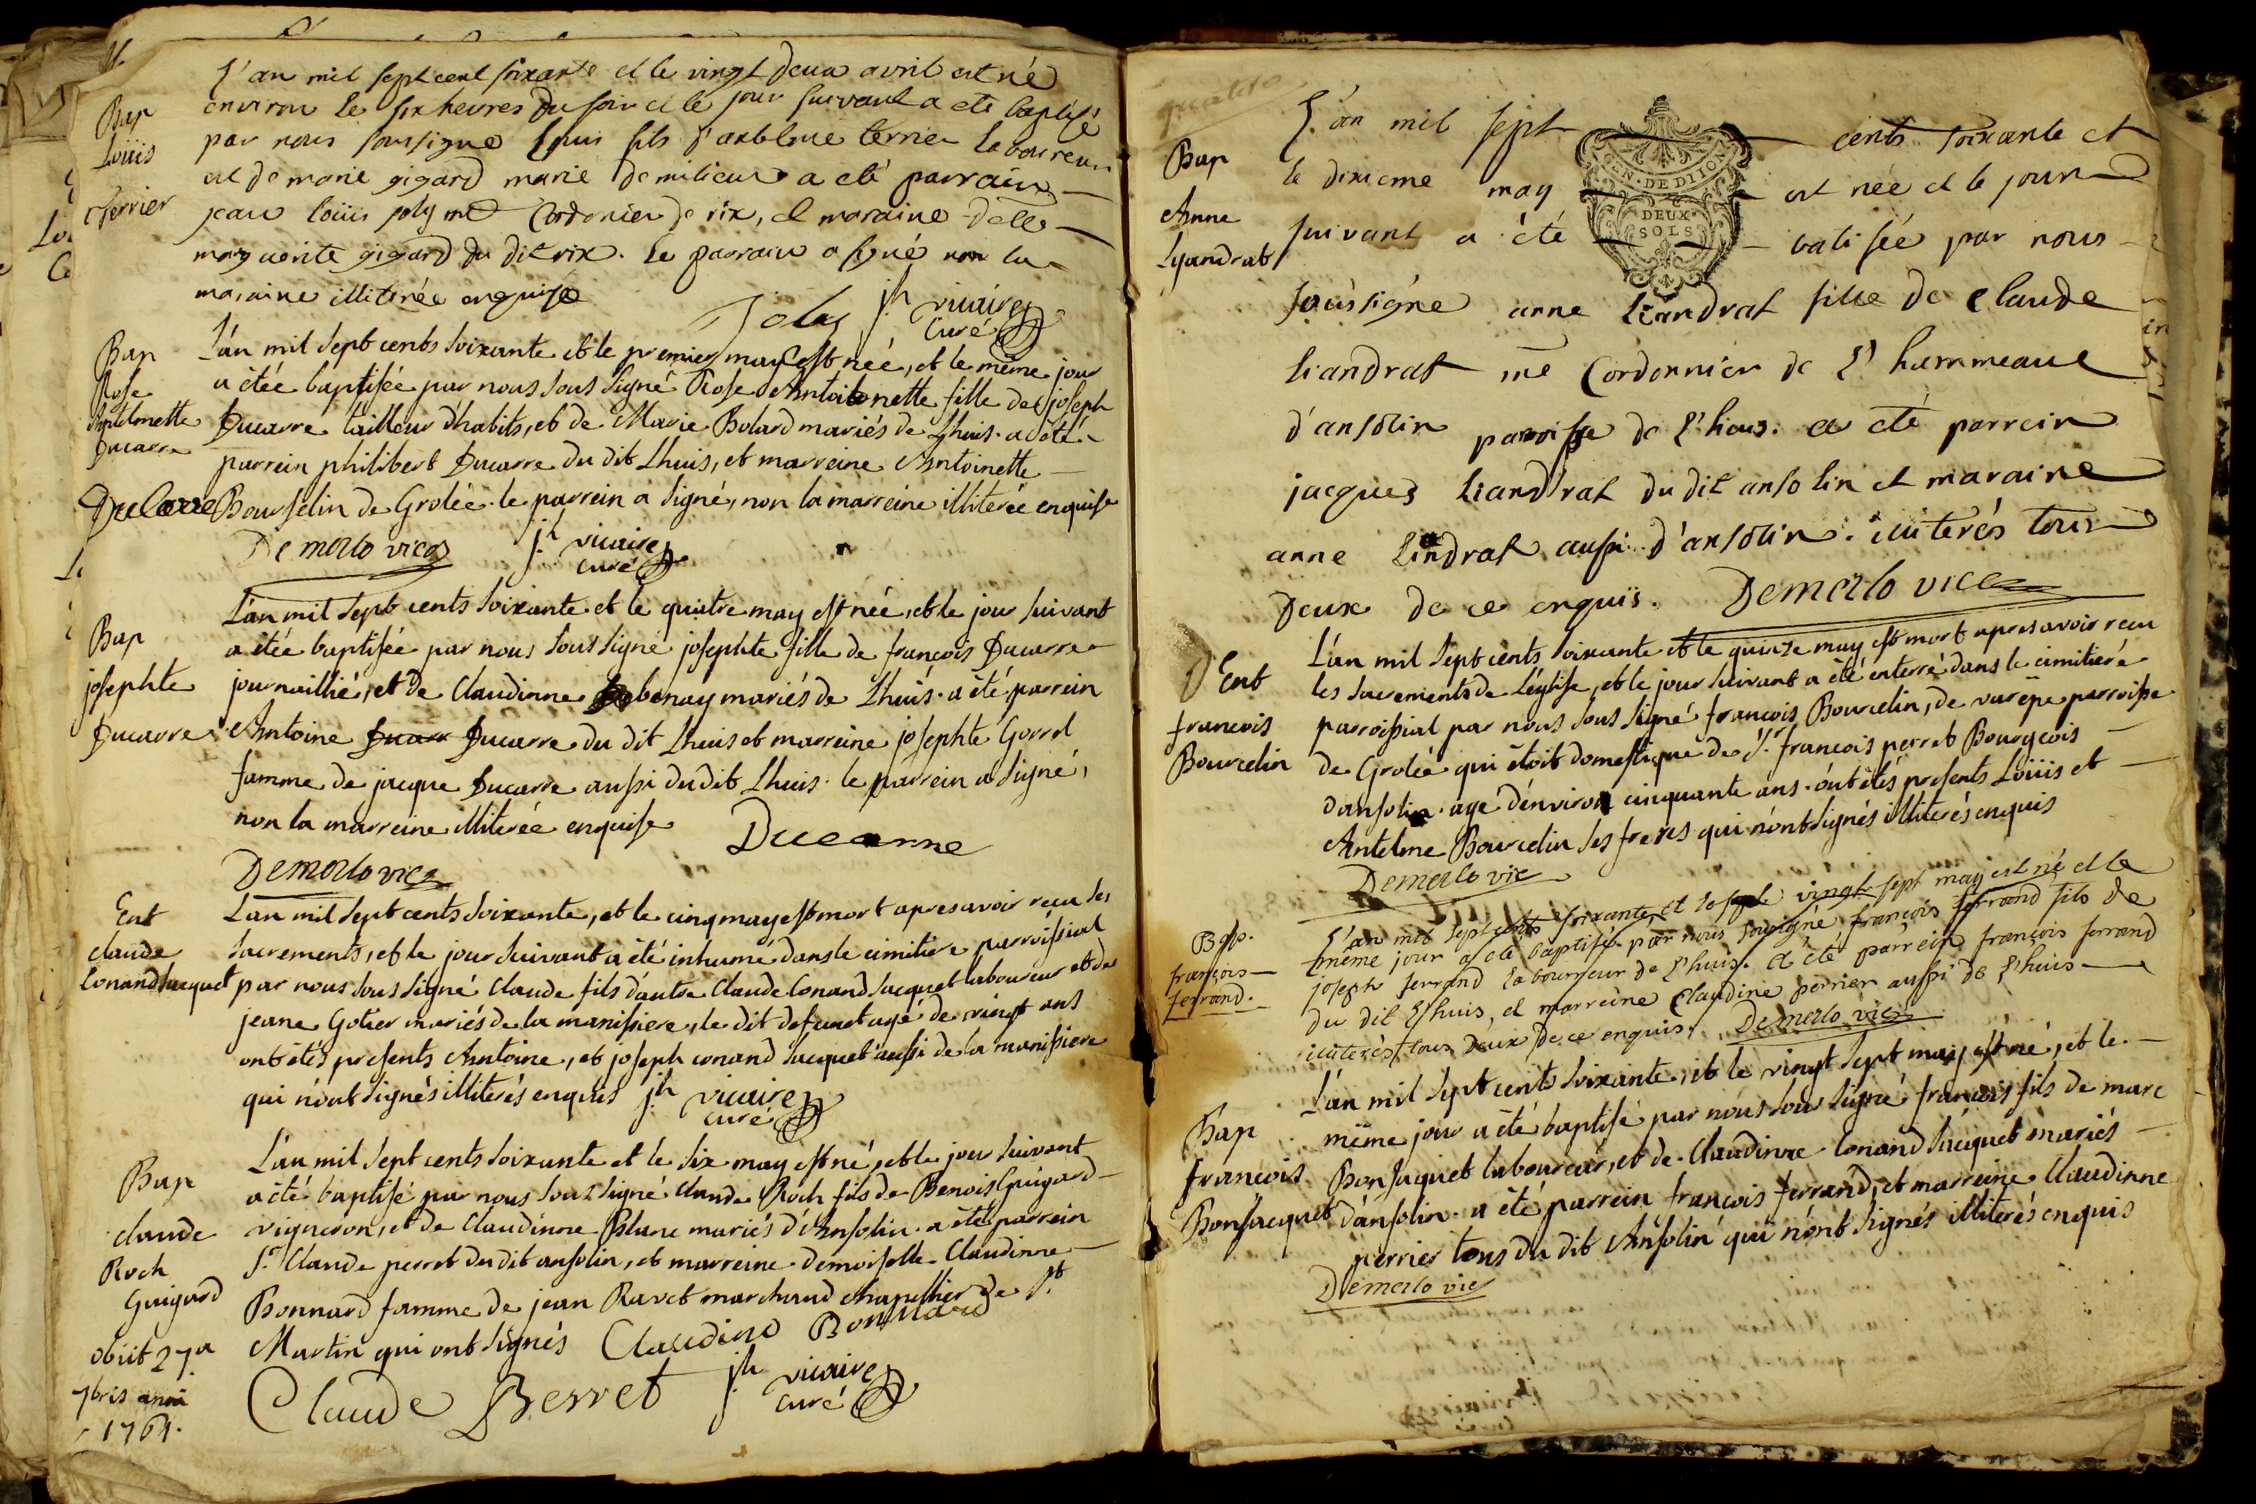 L'an mil sept cent soixante et le vingt deux avril est né
environ le six heures du soir et le jour suivant a eté baptisé
par nous soussigné Louis fils d'antelme terrier laboureur
et de marie gigard marie de milieu a eté parrain
jean loüis joly me Cordonier de rix, et maraine delle
marguerite gigard du dit rix. le parrain a signé non la
maraine illiterée enquise
Joly jh vicaire
curé
Bap
Loüis
terrier
L'an mil sept cents soixante et le premier may est née, et le même jour
a étée baptisée par nous sous signé Rose Antoinette fille de joseph
Ducarre tailleur d'habits, et de Marie Bolard mariés de Lhuis. a été
parrein philibert Ducarre du dit Lhuis, et marreine Antoinette
Bourselin de Grolée. le parrein a signé, non la marreine illiterée enquise
Ducarre
Demerlo vic jh vicaire
curé
Bap
Rose
Antelmette
Ducarre
L'an mil sept cents soixante et le quatre may est née, et le jour suivant
a étée baptisée par nous sous signé josephte fille de francois Ducarre
journaillié, et de Claudinne benay mariés de Lhuis. a été parrein
Antoine Ducarre du dit Lhuis et marreine josephte Gorrel
famme de jacque Ducarre aussi du dit Lhuis. le parrein a signé,
non la marreine illiterée enquise
Ducarre
Demerlo vic
Bap
josephte
Ducarre
L'an mil sept cents soixante, et le cinq may est mort apres avoir recu ses
sacrements, et le jour suivant a été inhumé dans le cimitiere parroissial
par nous sous signé Claude fils d'autre Claude Conand jacquet laboureur et de
jeane Gotier mariés de la manissiere, le dit defunct agé de vingt ans
ont étés presents Antoine, et joseph conand jacquet aussi de la manissiere
qui n'ont signés illiterés enquis jh vicaire
curé
Ent
claude
Conand jacquet
L'an mil sept cents soixante et le six may est né, et le jour suivant
a été baptisé par nous sous signé Claude Roch fils de Benois Guigard
vigneron, et de Claudinne Blanc mariés d'Ansolin. a été parrein
Sr Claude perret du dit ansolin, et marreine demoiselle Claudinne
Bonnard famme de jean Ravet marchand chapellier de St
Martin qui ont signés Claudine Bonnard
Claude Perret jh vicaire
curé
Bap
claude
Roch
Guigard
obiit 27a
7bris anni
1761.
L'an mil sept cents soixante et
le dixieme may est née et le jour
suivant a été batisée par nous
soussigné anne Liandrat fille de Claude
liandrat me Cordonnier de l'hammeaue
d'ansolin paroisse de l'huis. a eté parrein
jacques Liandrat du dit ansolin et maraine
anne Liandrat aussi d'ansolin. illiterés tous
deux de ce enquis. Demerlo vic
GEN. DE DIJON
DEUX
SOLS
Bap
Anne
Lyandrat
L'an mil sept cents soixante et le quinze may est mort apres avoir recu
les sacrements de l'église, et le jour suivant a été enterré dans le cimitieré
parroissial par nous sous signé francois Bourcelin, de varepe parroisse
de Grolée qui étoit domestique de Sr francois perret Bourgeois
d'ansolin. agé d'environ cinquante ans. ont étés presents Loüis et
Antelme Bourcelin ses freres qui n'ont signés illiterés enquis
Demerlo vic
Ent
francois
Bourcelin
L'an mil sept cents soixante et le vingt sept may est né et le
même jour a eté baptisé par nous sousigné françois ferrand fils de
joseph ferrand laboureur de l'huis. a eté parrein françois ferrand
du dit l'huis, et marreine Claudine perrier aussi de l'huis
illiterés tous deux de ce enquis. Demerlo vic
Bap.
françois
ferrand.
L'an mil sept cents soixante, et le vingt sept may est né, et le
même jour a été baptisé par nous sous signé francois fils de marc
Bonjaquet laboureur, et de Claudinne Conand jacquet mariés
d'ansolin. a été parrein francois ferrand, et marreine Claudinne
perrier tous du dit Ansolin qui n'ont signés illiterés enquis
Demerlo vic
Bap
francois
Bonjacquet